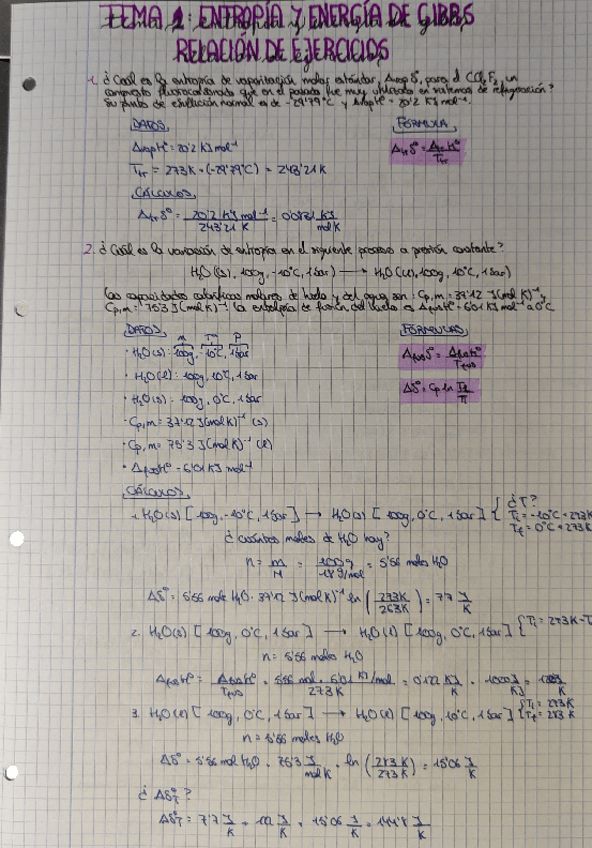 TEMA 2: ENTROPÍA Y ENERGÍA DE GIBBS
RELACIÓN DE EJERCICIOS
1. ¿Cuál es la entropía de vaporización molar estándar, ΔvapS°, para el CCl2F2, un
compuesto fluorocarbonado que en el pasado fue muy utilizado en sistemas de refrigeración?
Su punto de ebullición normal es de -29'79°C y ΔvapH° = 20'2 KJ mol⁻¹.
DATOS
FÓRMULA
ΔvapH° = 20'2 KJ mol⁻¹
ΔtrS° = ΔtrH° / Ttr
Ttr = 273K + (-29'79°C) = 243'21K
CÁLCULOS
ΔtrS° = 20'2 KJ mol⁻¹ / 243'21 K = 0'0831 KJ / mol K
2. ¿Cuál es la variación de entropía en el siguiente proceso a presión constante?
H2O (s, 100g, -10°C, 1 bar) → H2O (l, 100g, 10°C, 1 bar)
Las capacidades caloríficas molares del hielo y del agua son: Cp,m = 37'12 J (mol K)⁻¹ y
Cp,m = 75'3 J (mol K)⁻¹. La entalpía de fusión del hielo es ΔfusH° = 6'01 KJ mol⁻¹ a 0°C
DATOS m Tª P
FÓRMULAS
· H2O (s): 100g, -10°C, 1 bar
ΔfusS° = ΔfusH° / Tfus
· H2O (l): 100g, 10°C, 1 bar
ΔS° = Cp ln T2 / T1
· H2O (s): 100g, 0°C, 1 bar
· Cp,m = 37'12 J (mol K)⁻¹ (s)
· Cp,m = 75'3 J (mol K)⁻¹ (l)
· ΔfusH° = 6'01 KJ mol⁻¹
CÁLCULOS
1. H2O (s) [100g, -10°C, 1 bar] → H2O (s) [100g, 0°C, 1 bar] { ¿T? Ti = -10°C + 273K Tf = 0°C + 273K
¿cuántos moles de H2O hay?
n = m / M = 100g / 18 g/mol = 5'56 moles H2O
ΔS° = 5'56 mol H2O · 37'12 J (mol K)⁻¹ ln (273K / 263K) = 7'7 J / K
2. H2O (s) [100g, 0°C, 1 bar] → H2O (l) [100g, 0°C, 1 bar] { Ti = 273K
n = 5'56 moles H2O
ΔfusH° = ΔfusH° / Tfus = 5'56 mol · 6'01 KJ/mol / 273 K = 0'122 KJ / K · 1000 J / KJ = J / K
3. H2O (l) [100g, 0°C, 1 bar] → H2O (l) [100g, 10°C, 1 bar] { Ti = 273K Tf = 283K
n = 5'56 moles H2O
ΔS° = 5'56 mol H2O · 75'3 J / mol K · ln (283 K / 273 K) = 15'06 J / K
¿ΔS°T?
ΔS°T = 7'7 J / K + 122 J / K + 15'06 J / K = 144'8 J / K